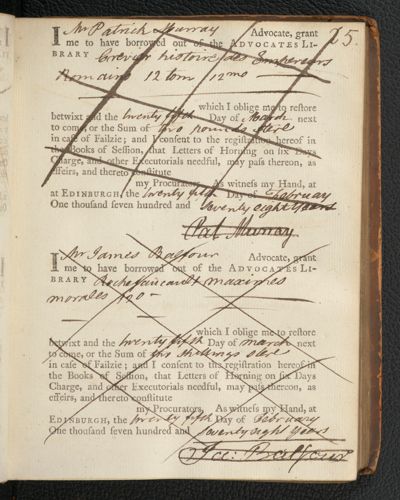 15.
I Mr Patrick Murray Advocate, grant
me to have borrowed out of the ADVOCATES LI-
BRARY Crevier histoire des Empereurs
Romains 12 tom 12mo
which I oblige me to restore
betwixt and the twenty fifth Day of March next
to come, or the Sum of two pounds sterl
in case of Failzie; and I consent to the registration hereof in
the Books of Session, that Letters of Horning on six Days
Charge, and other Executorials needful, may pass thereon, as
effeirs, and thereto constitute
my Procurators. As witness my Hand, at
at EDINBURGH, the twenty fifth Day of February
One thousand seven hundred and seventy eight years
Pat Murray
I Mr James Balfour Advocate, grant
me to have borrowed out of the ADVOCATES LI-
BRARY Rochefaucault maximes
morales 8vo
which I oblige me to restore
betwixt and the twenty fifth Day of march next
to come, or the Sum of shillings sterl
in case of Failzie; and I consent to the registration hereof in
the Books of Session, that Letters of Horning on six Days
Charge, and other Executorials needful, may pass thereon, as
effeirs, and thereto constitute
my Procurators. As witness my Hand, at
EDINBURGH, the twenty fifth Day of February
One thousand seven hundred and seventy eight years
Ja: Balfour